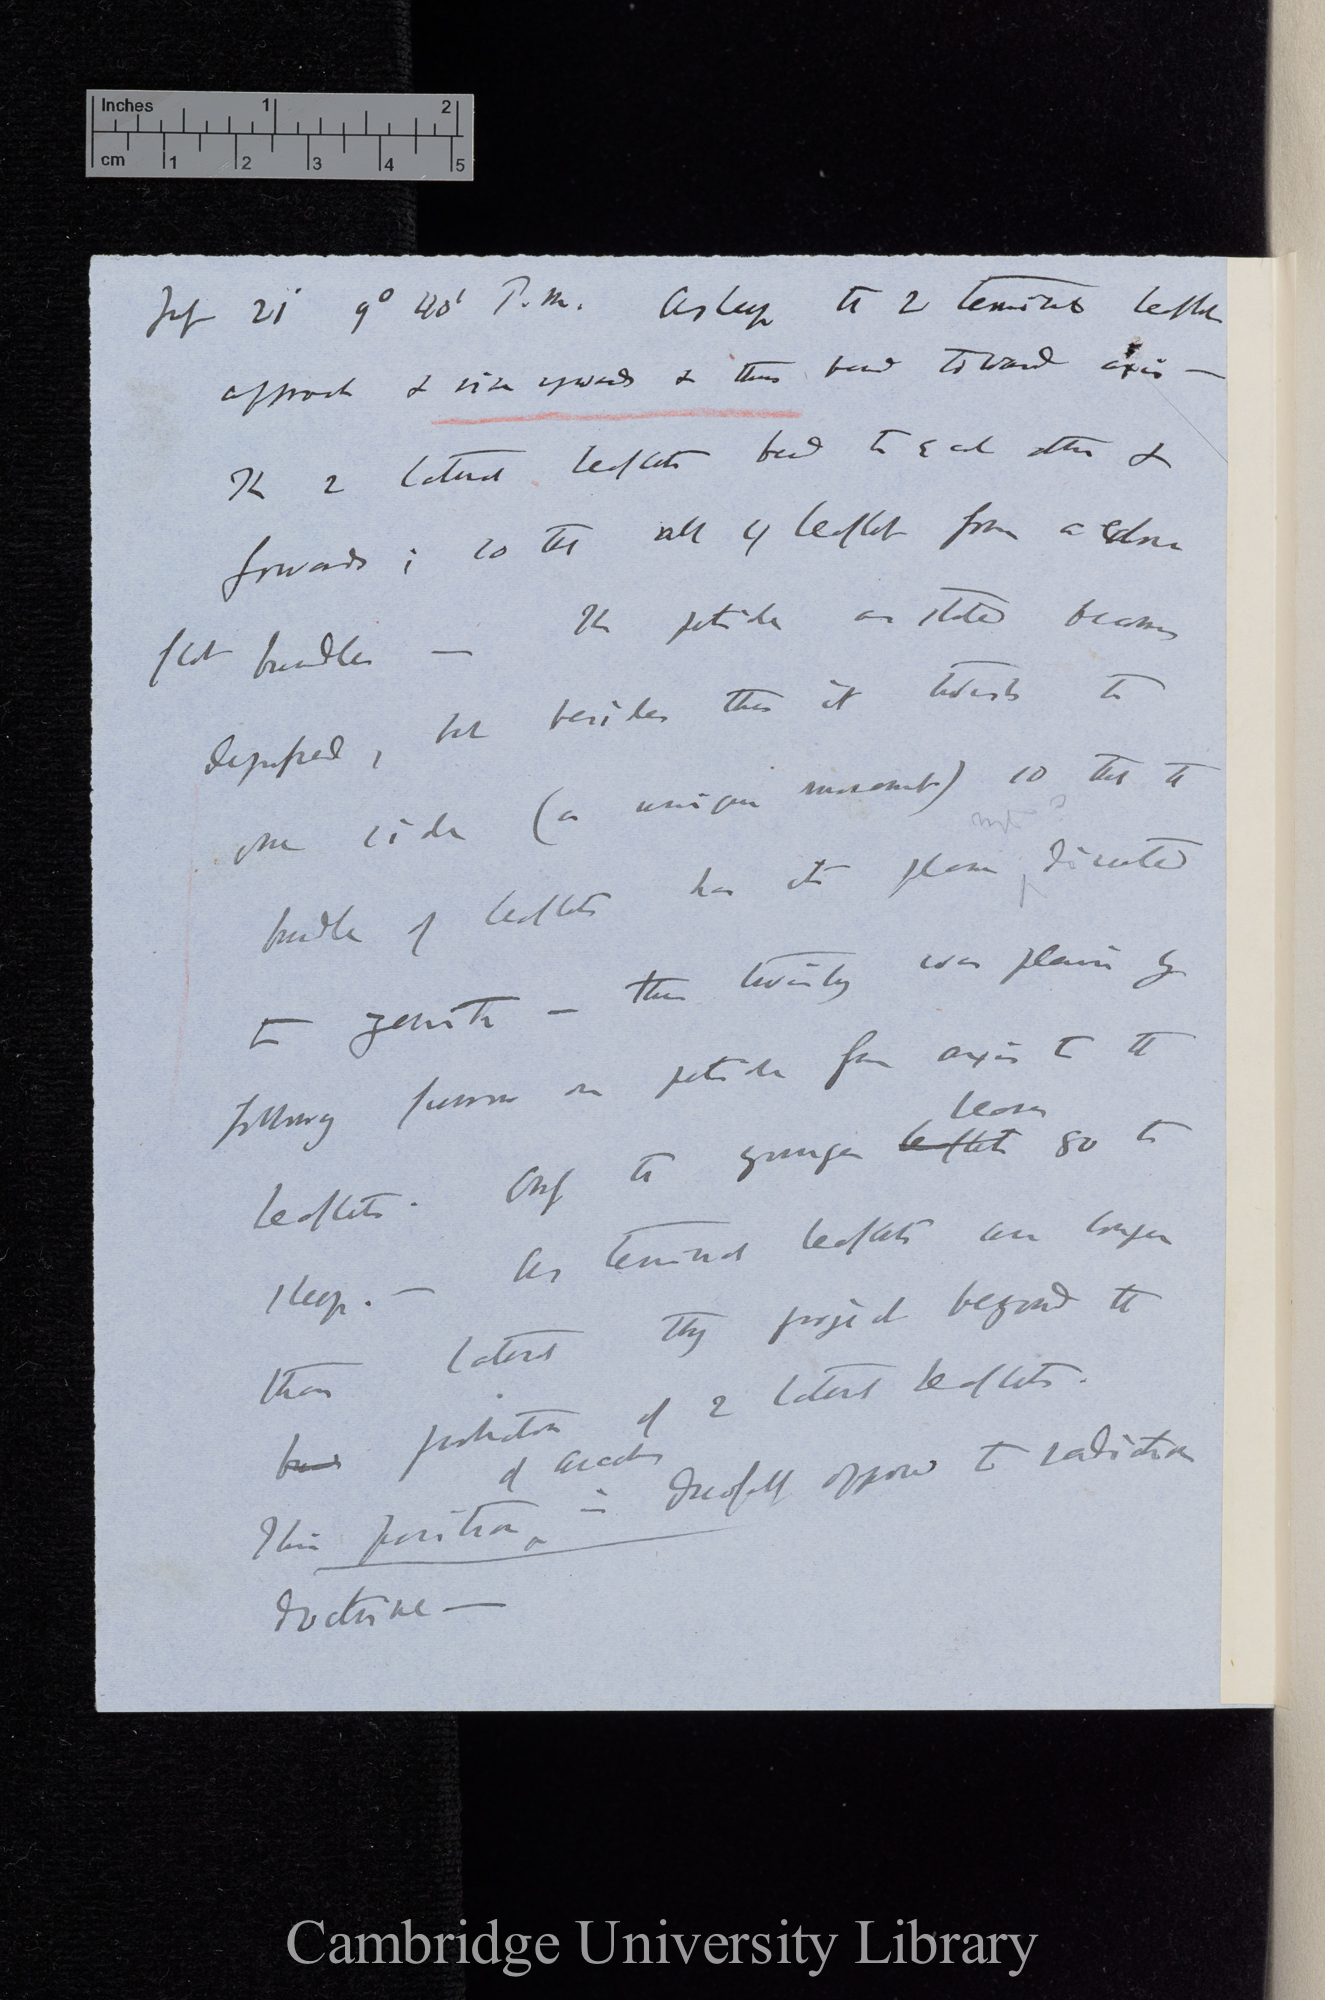 Inches 1 2
cm 1 2 3 4 5
July 21 9° 40' P.m. Asleep the 2 terminal leaflets
approach & rise upwards & thus bend toward axis —
The 2 lateral leaflets bend to each other &
forwards; so that all 4 leaflets form a close
flat bundle — The petiole as stated becomes
depressed, but besides this it twists to
one side (a unique movement) so that the
not?
bundle of leaflets has its plane directed
to zenith — this twisting was plain by
following furrow on petiole from axis to the
leaves
leaflets. Only the younger leaflets go to
sleep. — As terminal leaflets are longer
than lateral they project beyond the
bund protection of 2 lateral leaflets.
of
This position is dreadfully opposed to radiation
doctrine —
Cambridge University Library